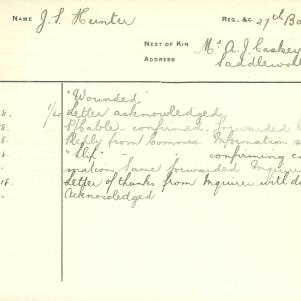 NAME J. S. Hunter REG. &C. 27th Ba
NEXT OF KIN Mr A. J. Caskey
ADDRESS Saddlewort
"Wounded"
8. 1/4 Letter acknowledged
8. cable confirmed. forwarded
8. Reply from Commis. Information s
8. " " confirming ca
mation. Same forwarded Inquire
18. Letter of thanks from Inquirer with d
Acknowledged